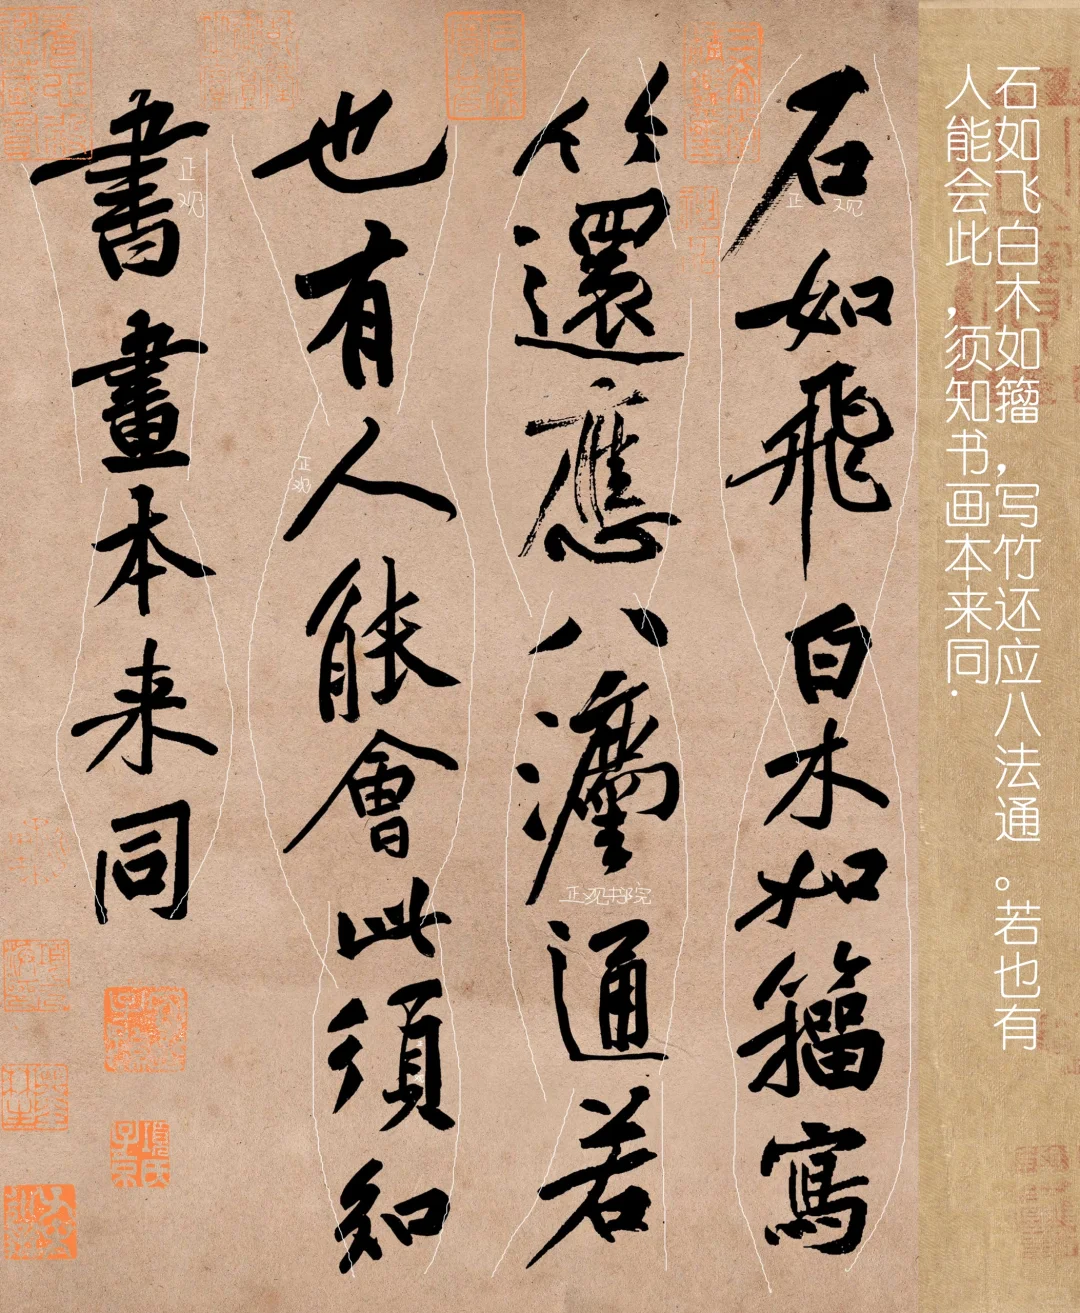 石如飞白木如籀，写竹还应八法通。若也有
人能会此，须知书画本来同.
石如飛白木如籀寫
竹還應八灋通若
也有人能會此須知
書畫本来同
正观
正观书院
正观
正观
項氏子京